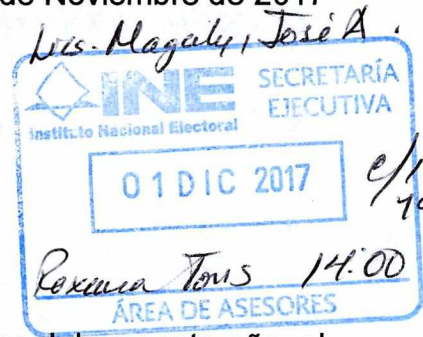 de Noviembre de 2017
Lics. Magaly, José A.
INE
Instituto Nacional Electoral
SECRETARÍA
EJECUTIVA
01 DIC 2017
Roxana 14:00
ÁREA DE ASESORES